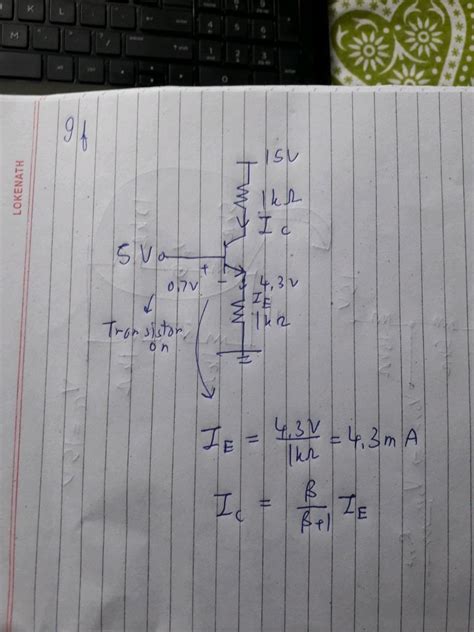 LOKENATH
If
15V
1kΩ
I_C
5V
+
0.7V -
4.3V
I_E
1kΩ
Transistor
on
I_E = 4.3V/1kΩ = 4.3mA
I_C = β/β+1 I_E